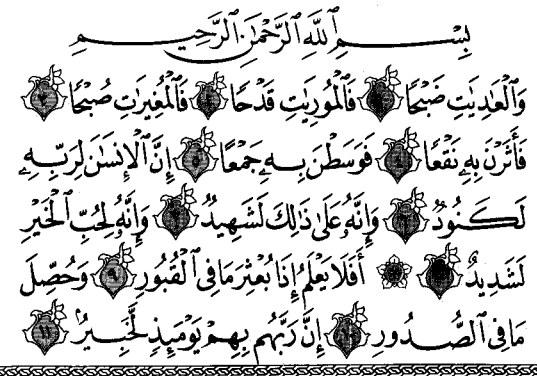 بِسْمِ ٱللَّهِ ٱلرَّحْمَٰنِ ٱلرَّحِيمِ
وَٱلْعَٰدِيَٰتِ ضَبْحًا ١ فَٱلْمُورِيَٰتِ قَدْحًا ٢ فَٱلْمُغِيرَٰتِ صُبْحًا ٣
فَأَثَرْنَ بِهِۦ نَقْعًا ٤ فَوَسَطْنَ بِهِۦ جَمْعًا ٥ إِنَّ ٱلْإِنسَٰنَ لِرَبِّهِۦ
لَكَنُودٌ ٦ وَإِنَّهُۥ عَلَىٰ ذَٰلِكَ لَشَهِيدٌ ٧ وَإِنَّهُۥ لِحُبِّ ٱلْخَيْرِ
لَشَدِيدٌ ٨ ۞ أَفَلَا يَعْلَمُ إِذَا بُعْثِرَ مَا فِى ٱلْقُبُورِ ٩ وَحُصِّلَ
مَا فِى ٱلصُّدُورِ ١٠ إِنَّ رَبَّهُم بِهِمْ يَوْمَئِذٍ لَّخَبِيرٌۢ ١١